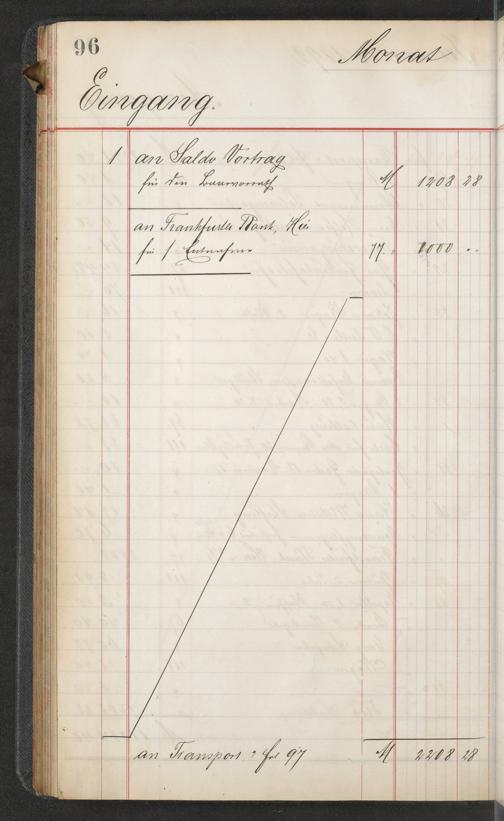 96
Monat
Eingang.
1 an Saldo Vortrag M 1208 28
für den Baarvorrath
an Frankfurter Bank, Hier
für s/ Entnahme 77. " 1000 ..
an Transport a fol 97 M 2208 28